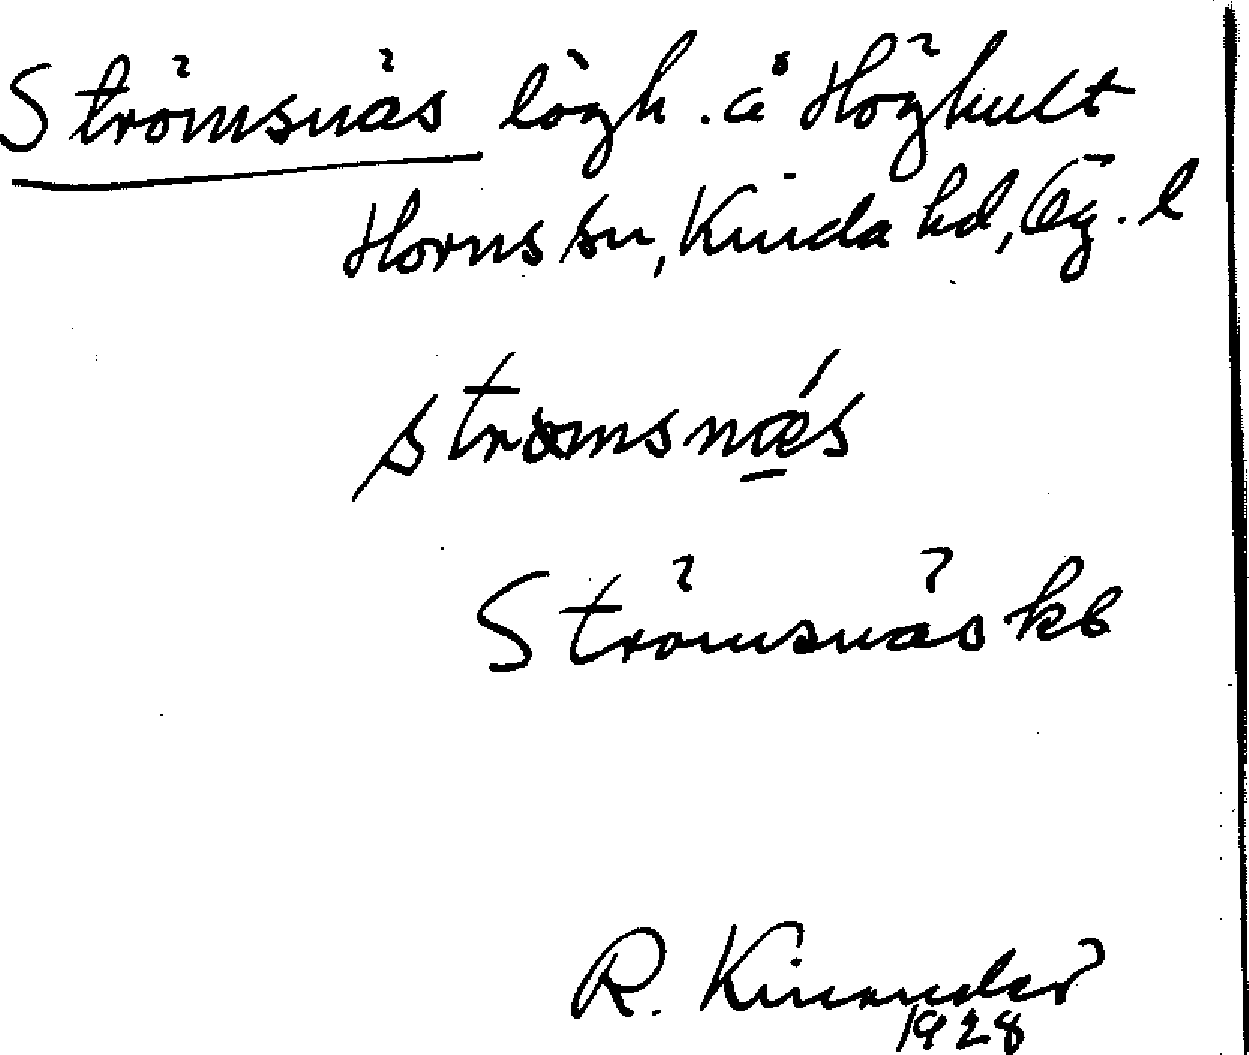 Strömsnäs lägh. å Höghult
Horns sn, Kinda hd, Ög. l
strömsnǽs
Strömsnäs kb
R. Kinander
1928